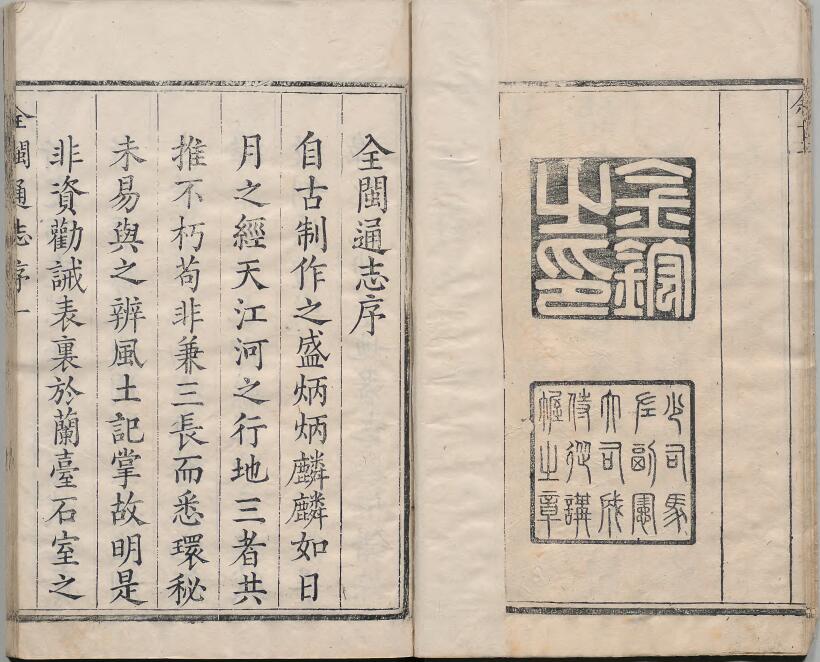 金鋐
之印
少司馬
左副憲
大司成
侍從講
幄之章
全閩通志序
自古制作之盛炳炳麟麟如日
月之經天江河之行地三者共
推不朽苟非兼三長而悉環秘
未易與之辨風土記掌故明是
非資勸誡表裏於蘭臺石室之
全閩通志序一